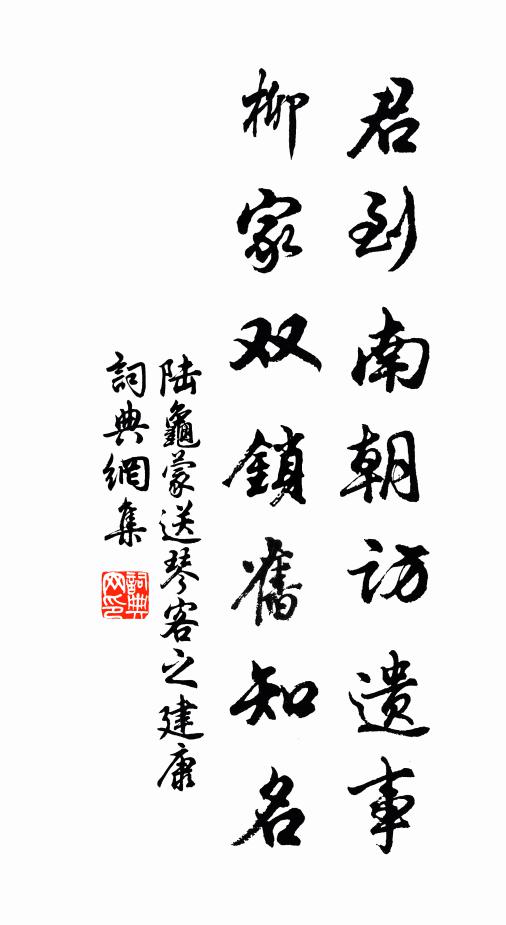 君到南朝访遗事
柳家双鎖舊知名
陆龜蒙送琴客之建康
詞典網集
詞典网印